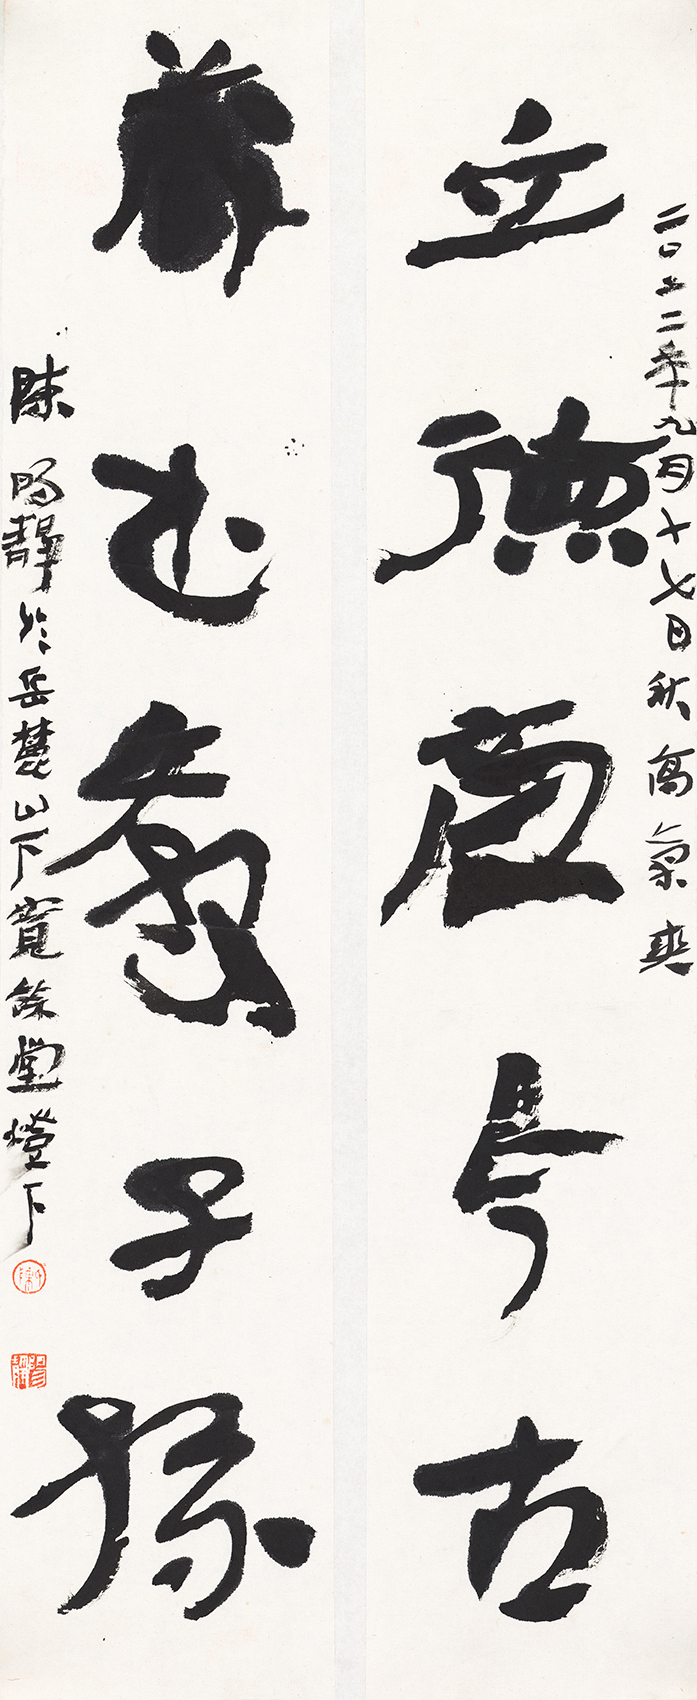 立德齊今古
二〇二二年九月十七日秋高氣爽
藏書教子孫
陳暘靜於岳麓山下寬餘堂燈下